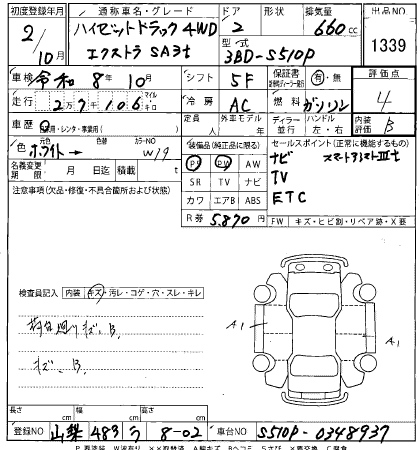 初度登録年月 通称車名・グレード ドア 形状 排気量 出品NO
2/10月 ハイゼットトラック 4WD エクストラ SAⅢt 2 660cc 1339
型式 3BD-S510P
車検 令和 8年 10月 シフト 5F 保証書 有・無 評価点 4
走行 27,106 マイル キロ 冷房 AC 燃料 ガソリン
車歴 自家用・レンタ・事業用( ) 定員 人 外車モデル 年 ディーラー 並行 ハンドル 左・右 内装評価 B
色 元色 ホワイト→ 色替 カラーNO W19 装備品(純正品に限る) セールスポイント(正常に機能するもの)
PS PW AW ナビ スマートアシストⅢt
名義変更期限 月 日迄 積載 t SR TV ナビ TV
注意事項(欠品・修復・不具合箇所および状態) カワ エアB ABS ETC
R券 5,870円 FW キズ・ヒビ割・リペア跡・X要
検査員記入 内装 キズ・汚レ・コゲ・穴・スレ・キレ
荷台廻りキズ、B
キズ、B
A1 A1
長さ cm 幅 cm 高さ cm
登録NO 山梨 483 う 8-02 車台NO S510P-0348937